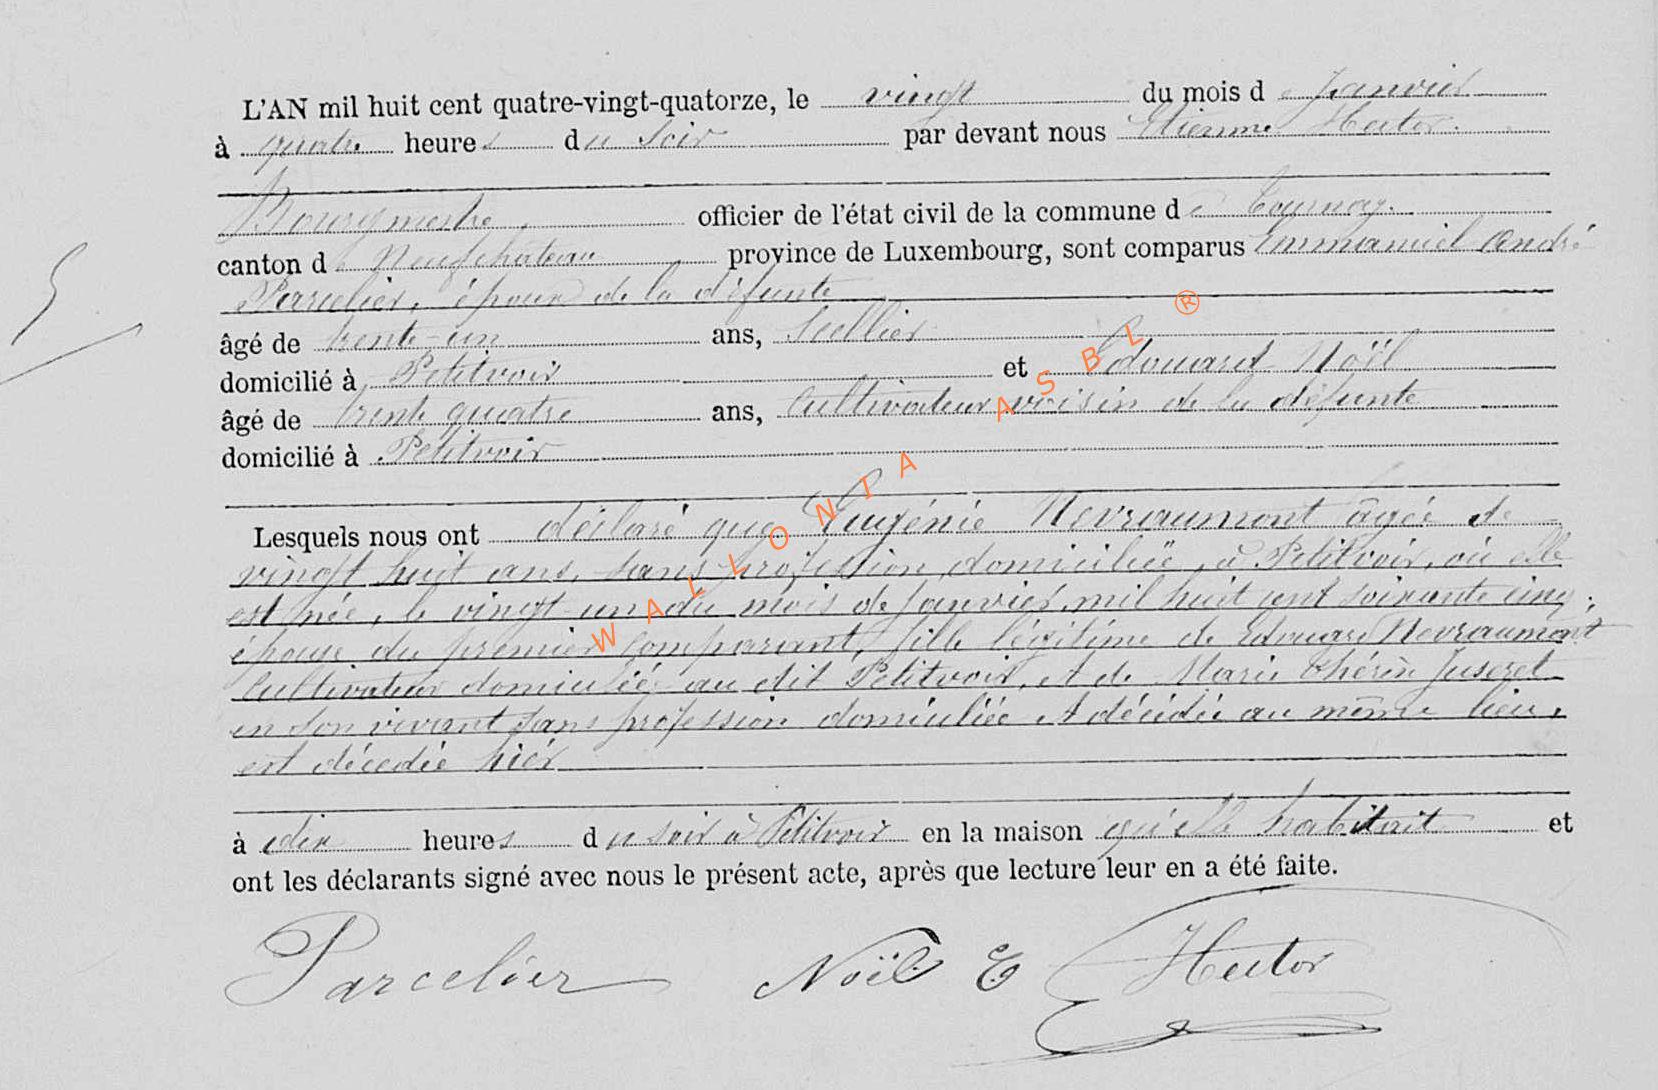 L'AN mil huit cent quatre-vingt-quatorze, le vingt du mois d e Janvier
à quatre heures du soir par devant nous Etienne Hector.
Bourgmestre officier de l'état civil de la commune de Tournay.
canton de Neufchâteau province de Luxembourg, sont comparus Emmanuel André
Parcelier, époux de la défunte
âgé de trente-un ans, Scellier
domicilié à Petitvoir et Edouard Noël
âgé de trente quatre ans, Cultivateur voisin de la défunte
domicilié à Petitvoir
5
Lesquels nous ont déclaré que Eugénie Nevraumont âgée de
vingt huit ans, sans profession, domiciliée, à Petitvoir, où elle
est née, le vingt-un du mois de Janvier, mil huit cent soixante cinq;
épouse du premier comparant, fille légitime de Edouard Nevraumont
Cultivateur domicilié au dit Petitvoir, et de Marie Thérèse Juseret
en son vivant sans profession domiciliée et décédée au même lieu,
est décédée hier
à dix heures du soir à Petitvoir en la maison qu'elle habitait et
ont les déclarants signé avec nous le présent acte, après que lecture leur en a été faite.
Parcelier Noël E Hector
WALLONIA ASBL ®